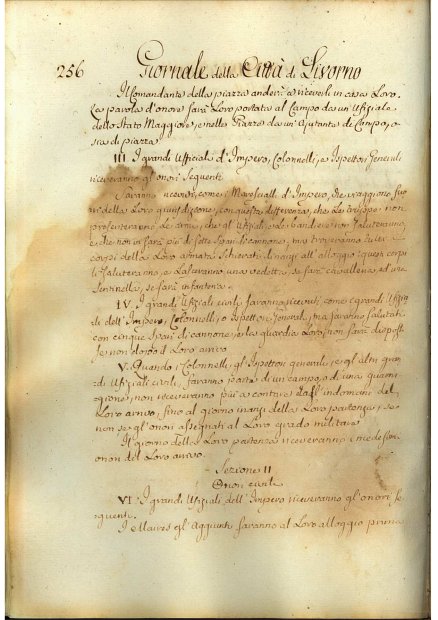 256 Giornale della Città di Livorno
Il Comandante della piazza anderà a riceverli in casa Loro.
La parola d'onore sarà Loro portata al Campo da un' Ufiziale
dello Stato Maggiore, e nelle Piazze da un' Ajutante di Campo, o
sia di piazza
III I grandi Ufficiali d'Impero, Colonnelli, e Ispettori Generali
riceveranno gl'onori seguenti
Saranno ricevuti, come i Marescialli d'Impero, che viaggiono fuo
ri della Loro giurisdizione, con questa differenza, che Le truppe non
presenteranno Le armi, che gl'Ufiziali, e Le bandiere non saluteranno
e che non si farà più di sette spari di cannone, ma troveranno tutti i
corpi della Loro armata schierati dinanzi all'alloggio; questi corpi
li saluteranno, e Lasceranno una vedetta, se sarà cavalleria, ed una
Sentinella, se sarà infanteria.
IV. I grandi Ufiziali civili saranno ricevuti come i grandi Ufizia
li dell'Impero, Colonnelli, o Ispettori Generali, ma saranno salutati
con cinque spari di cannone, e la guardia Loro non sarà disposta
se non dopo il Loro arrivo
V. Quando i Colonnelli, gl'Ispettori generali, e gl'altri gran
di Ufiziali civili, faranno parte di un campo, o d'una guarni
gione, non riceveranno più a contare dall'indomani del
Loro arrivo, fino al giorno innanzi della Loro partenza, se
non se gl'onori assegnati al Loro grado militare
Il giorno della Loro partenza riceveranno i medesimi
onori del Loro arrivo.
Sezione II
Onori civili
VI. I grandi Ufiziali dell'Impero riceveranno gl'onori se
guenti.
I e gl'Aggiunti saranno al Loro alloggio prima